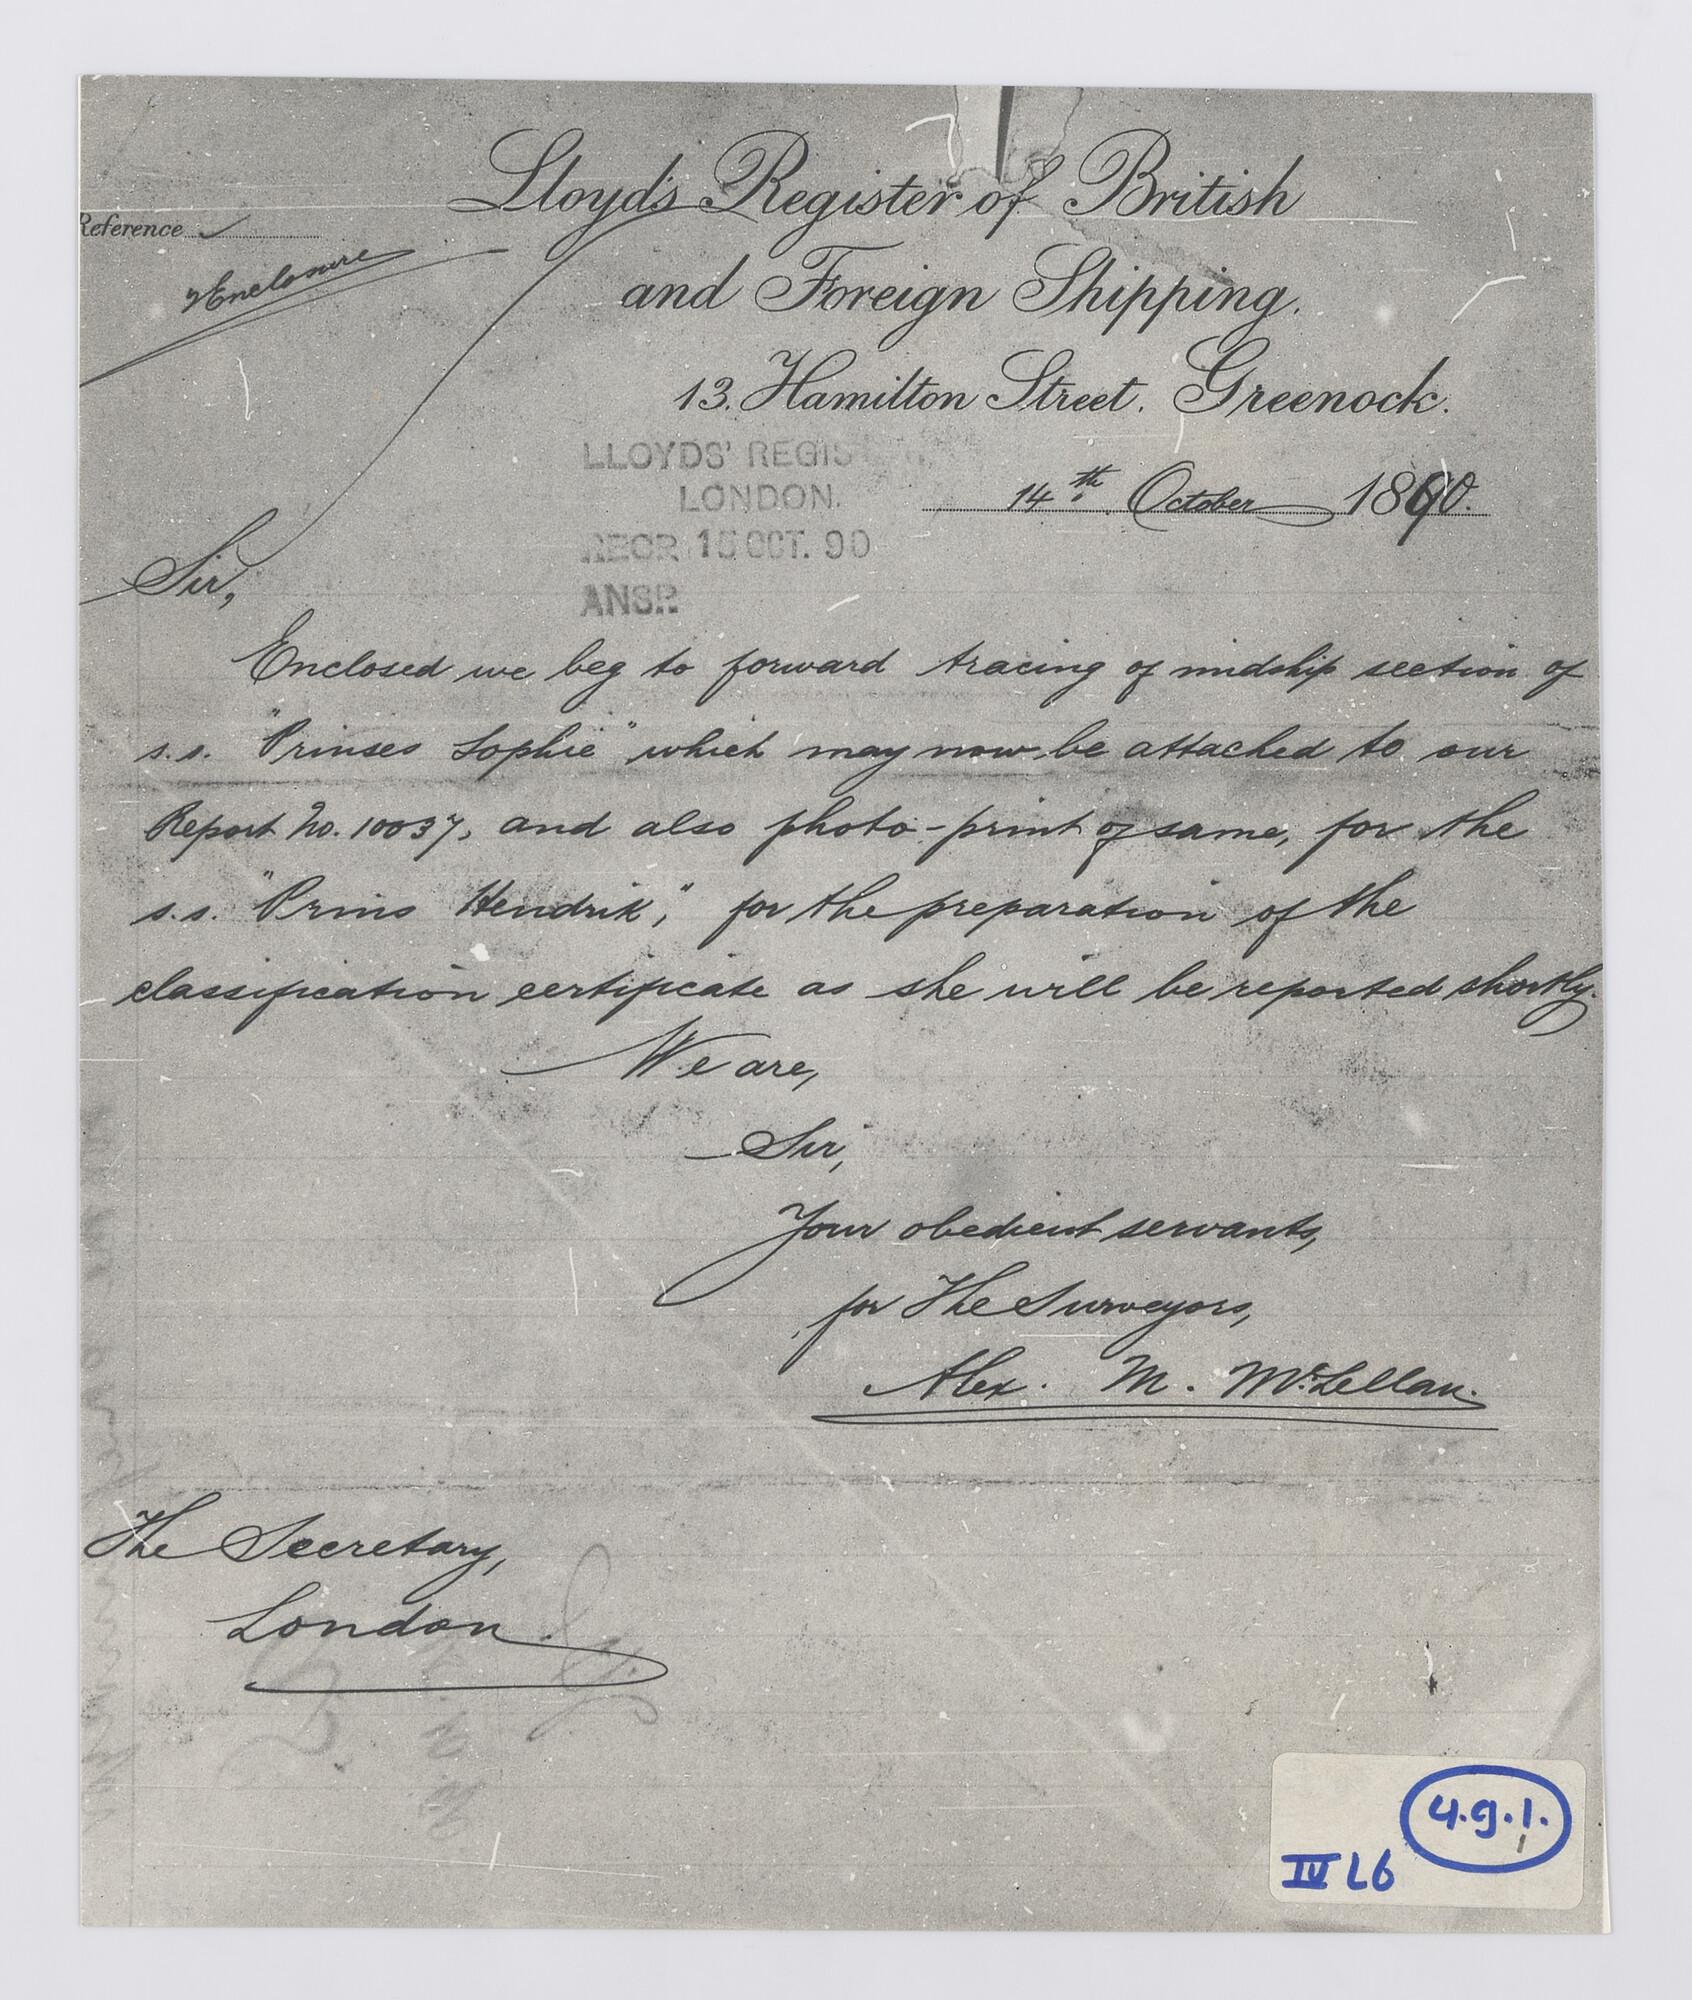 Lloyd's Register of British
Reference
2 Enclosure
and Foreign Shipping.
13. Hamilton Street. Greenock.
LLOYDS' REGIS
LONDON.
14th October 1890.
RECR 15 OCT. 90
ANSR
Sir,
Enclosed we beg to forward tracing of midship section of
s.s. "Prinses Sophie" which may now be attached to our
Report No. 10037, and also photo-print of same, for the
s.s. "Prins Hendrik", for the preparation of the
classification certificate as she will be reported shortly.
We are,
Sir,
Your obedient servants,
for The Surveyors,
Alex. M. McLellan.
The Secretary,
London.
4.9.1.
IV L6